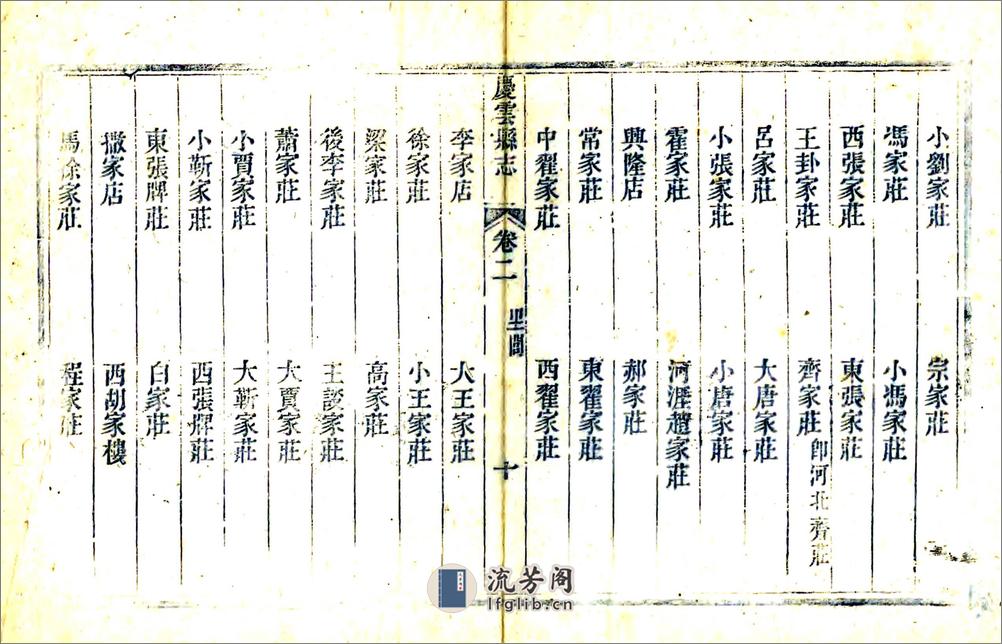 小劉家莊 宗家莊
馮家莊 小馮家莊
西張家莊 東張家莊
王卦家莊 齊家莊 即河北齊莊
呂家莊 大唐家莊
小張家莊 小唐家莊
霍家莊 河涯趙家莊
興隆店 郝家莊
常家莊 東翟家莊
中翟家莊 西翟家莊
慶雲縣志 卷二 十
李家店 大王家莊
徐家莊 小王家莊
梁家莊 高家莊
後李家莊 王談家莊
蕭家莊 大賈家莊
小賈家莊 大靳家莊
小靳家莊 西張牌莊
東張牌莊 白家莊
撒家店 西胡家樓
馬徐家莊 程家莊
流芳阁
lfglib.cn